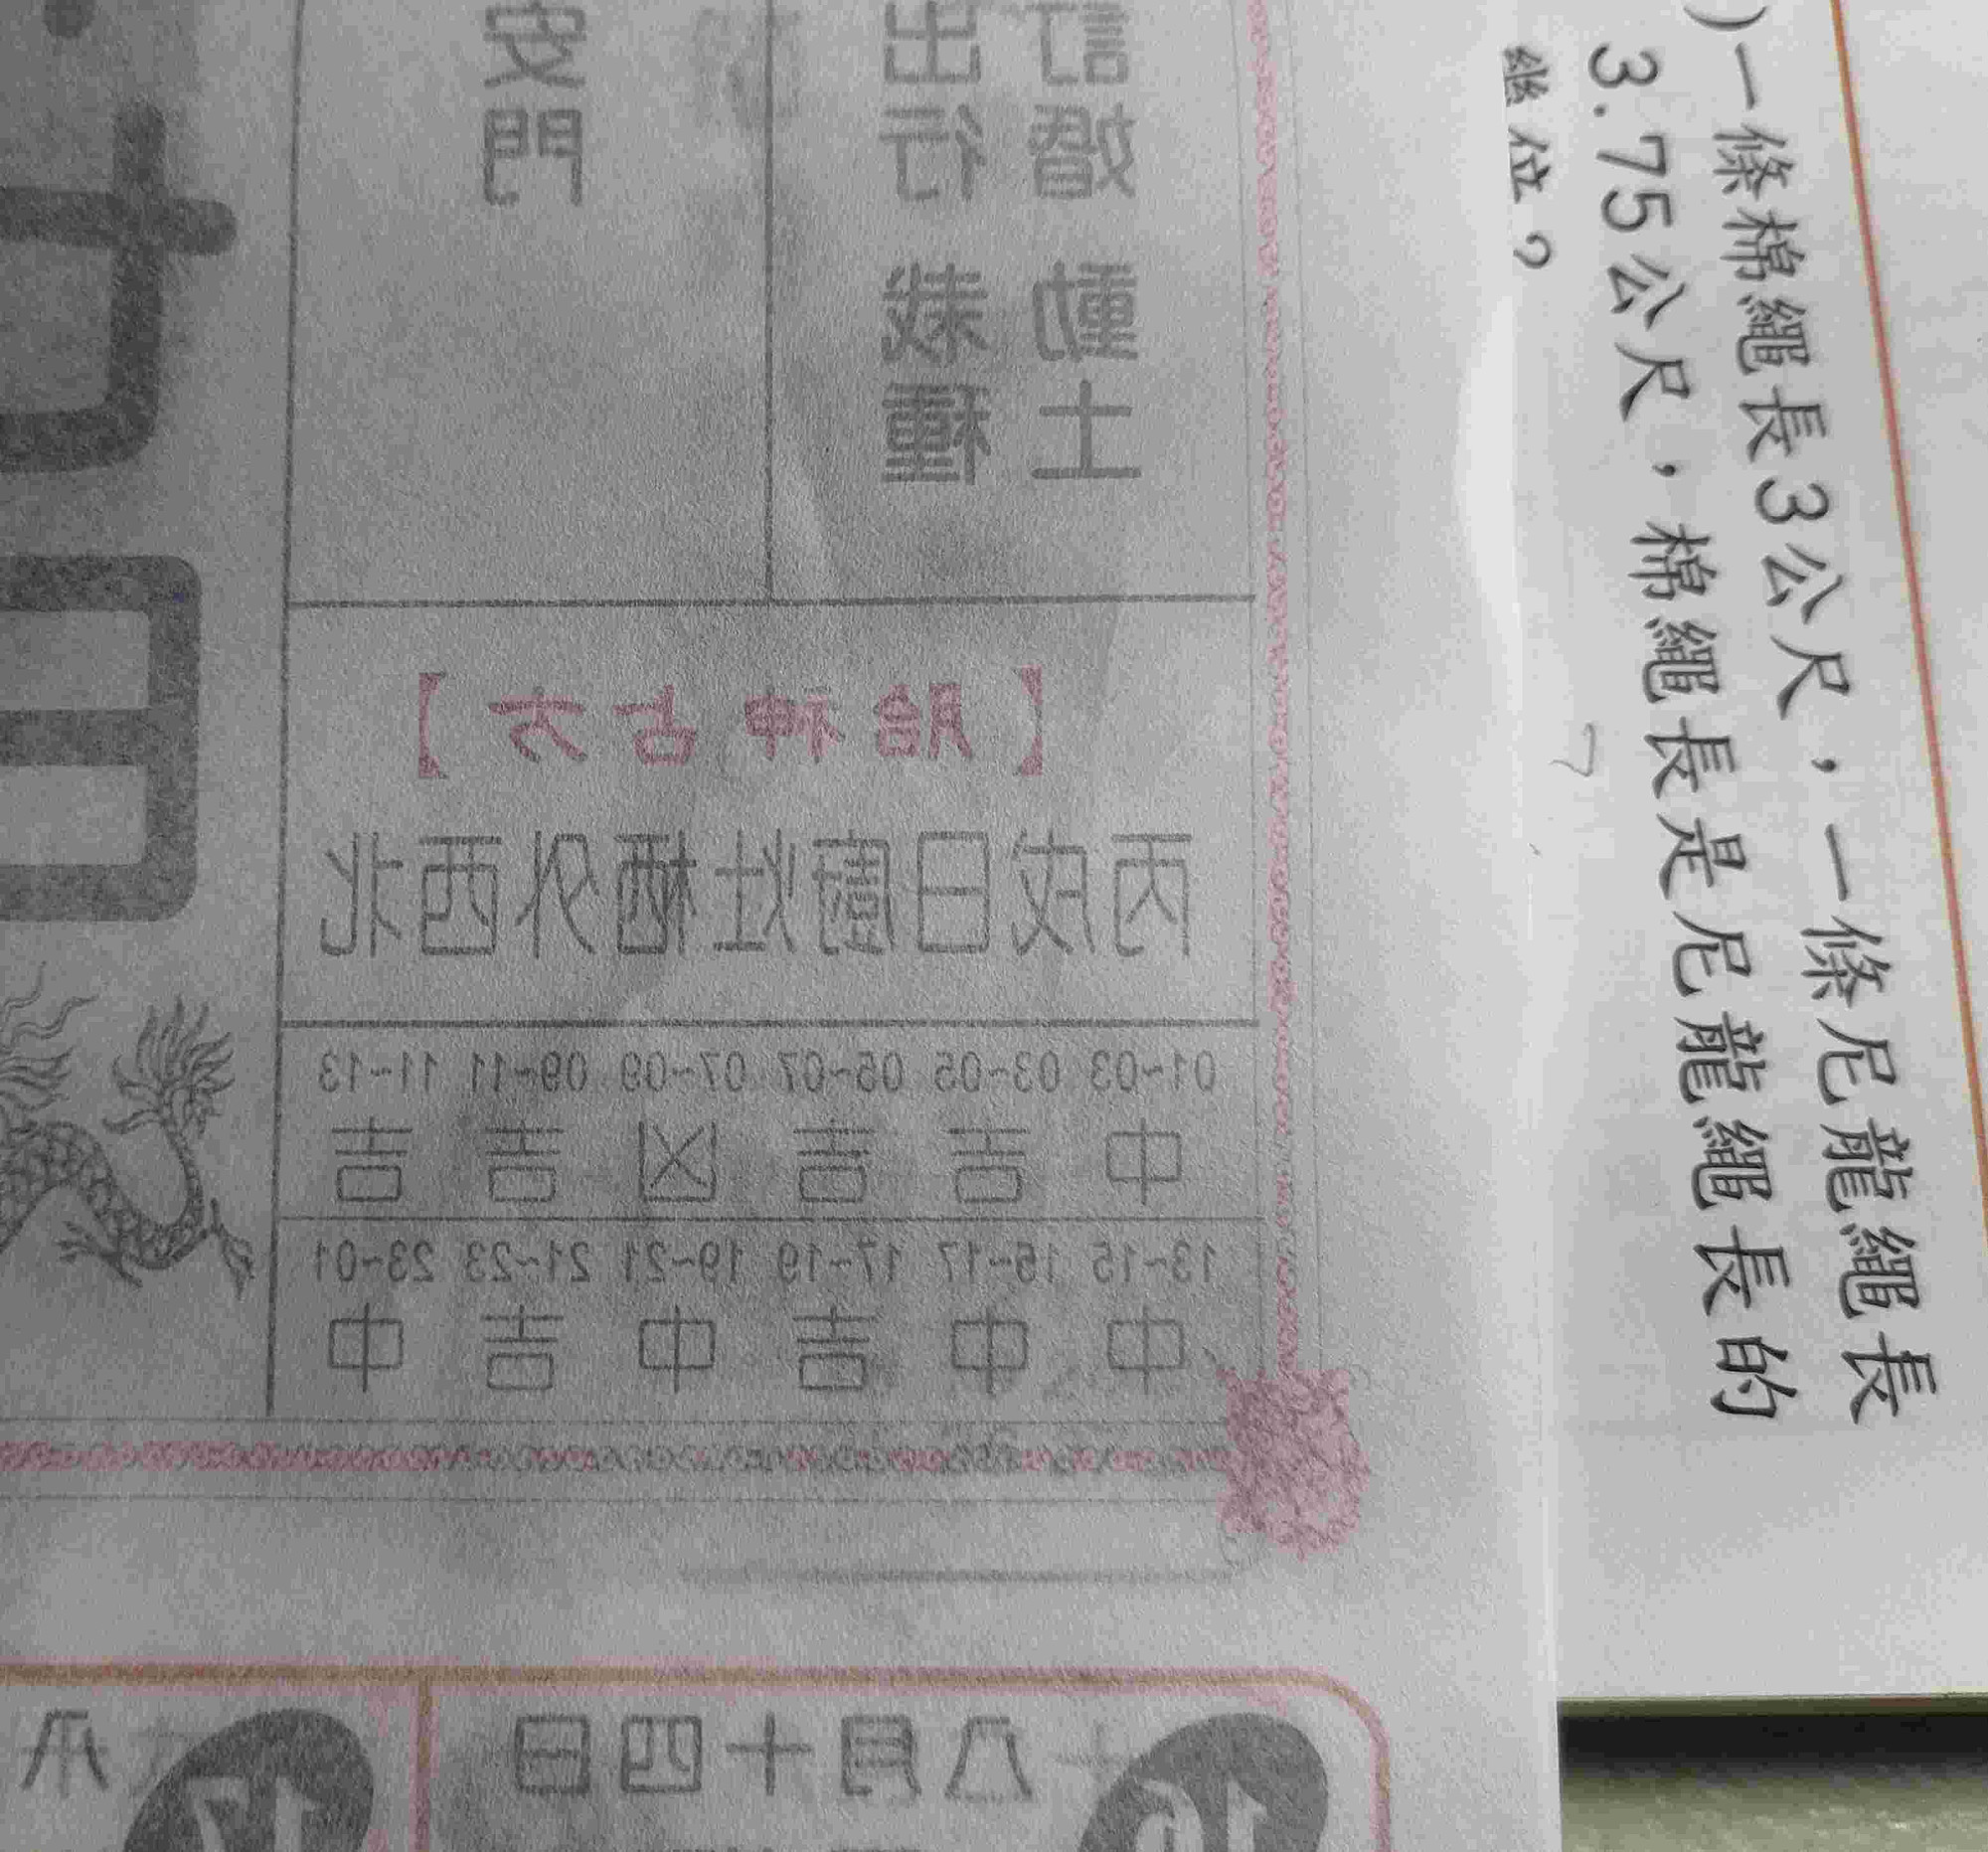 )一條棉繩長3公尺，一條尼龍繩長
3.75公尺，棉繩長是尼龍繩長的
幾位？
訂婚 動土
出行 栽種
安門
【胎神占方】
丙戌日廚灶栖外西北
01~03 03~05 05~07 07~09 09~11 11~13
中 吉 吉 凶 吉 吉
13~15 15~17 17~19 19~21 21~23 23~01
中 中 吉 中 吉 中
16
八月十四日
17